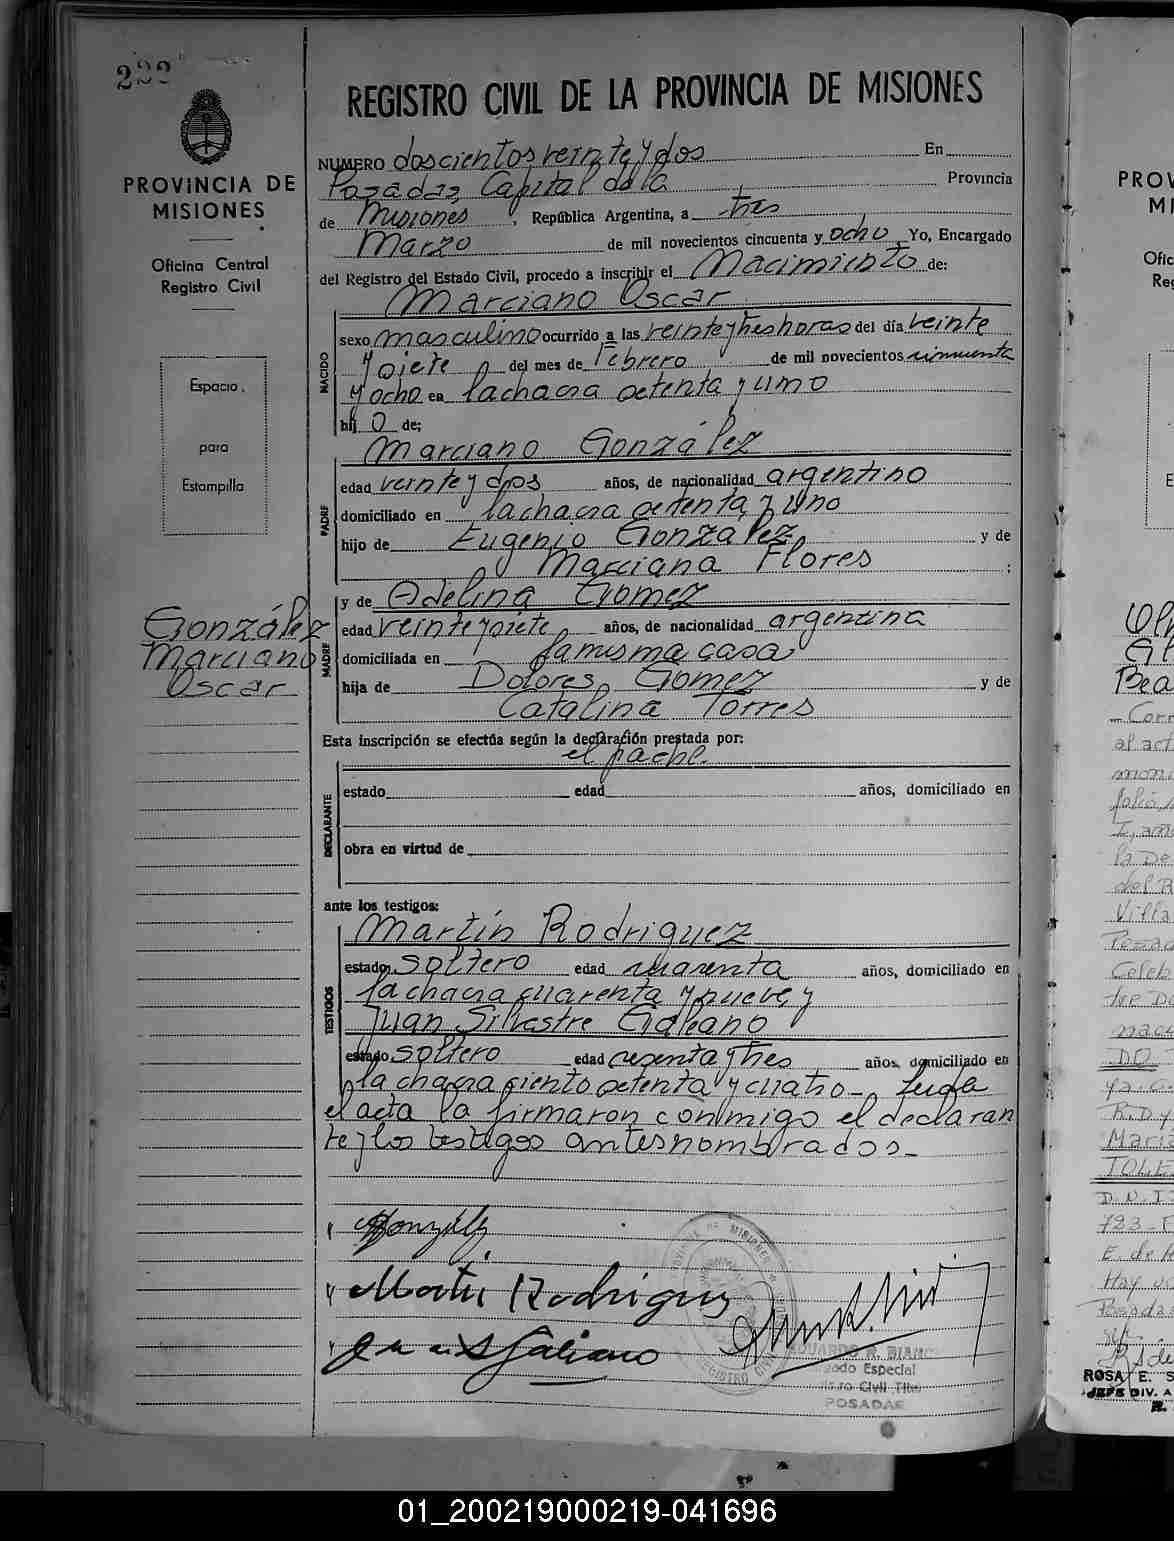 222
PROVINCIA DE
MISIONES
Oficina Central
Registro Civil
Espacio
para
Estampilla
González
Marciano
Oscar
REGISTRO CIVIL DE LA PROVINCIA DE MISIONES
NUMERO doscientos veinte y dos En
Posadas, Capital de la Provincia
de Misiones, República Argentina, a tres
Marzo de mil novecientos cincuenta y ocho Yo, Encargado
del Registro del Estado Civil, procedo a inscribir el Nacimiento de:
Marciano Oscar
NACIDO
sexo masculino ocurrido a las veinte y tres horas del día veinte
y siete del mes de Febrero de mil novecientos cincuenta
y ocho en la chacra setenta y uno
hij o de:
Marciano González
PADRE
edad veinte y dos años, de nacionalidad argentino
domiciliado en la chacra setenta y uno
hijo de Eugenio González y de
Marciana Flores ;
y de Adelina Gomez
MADRE
edad veinte y siete años, de nacionalidad argentina
domiciliada en la misma casa
hija de Dolores Gomez y de
Catalina Torres
Esta inscripción se efectúa según la declaración prestada por:
el padre.
DECLARANTE
estado edad años, domiciliado en
obra en virtud de
ante los testigos:
Martín Rodriguez
TESTIGOS
estado soltero edad cuarenta años, domiciliado en
la chacra cuarenta y nueve, y
Juan Silvestre Galeano
estado soltero edad sesenta y tres años, domiciliado en
la chacra ciento setenta y cuatro.- Leida
el acta la firmaron conmigo el declaran
te y los testigos antesnombrados.-
Martin Rodriguez
EDUARDO R. BIANC
Especial
Civil
POSADAS
PROV
MI
Ofic
Reg
E
Bea
Corr
al act
moni
la De
del R
Villa
Posad
Celeb
DO
Maria
TOLE
D.N.I.
723
Hay
Posada
ROSA E. S
JEFE DIV. A
01_200219000219-041696